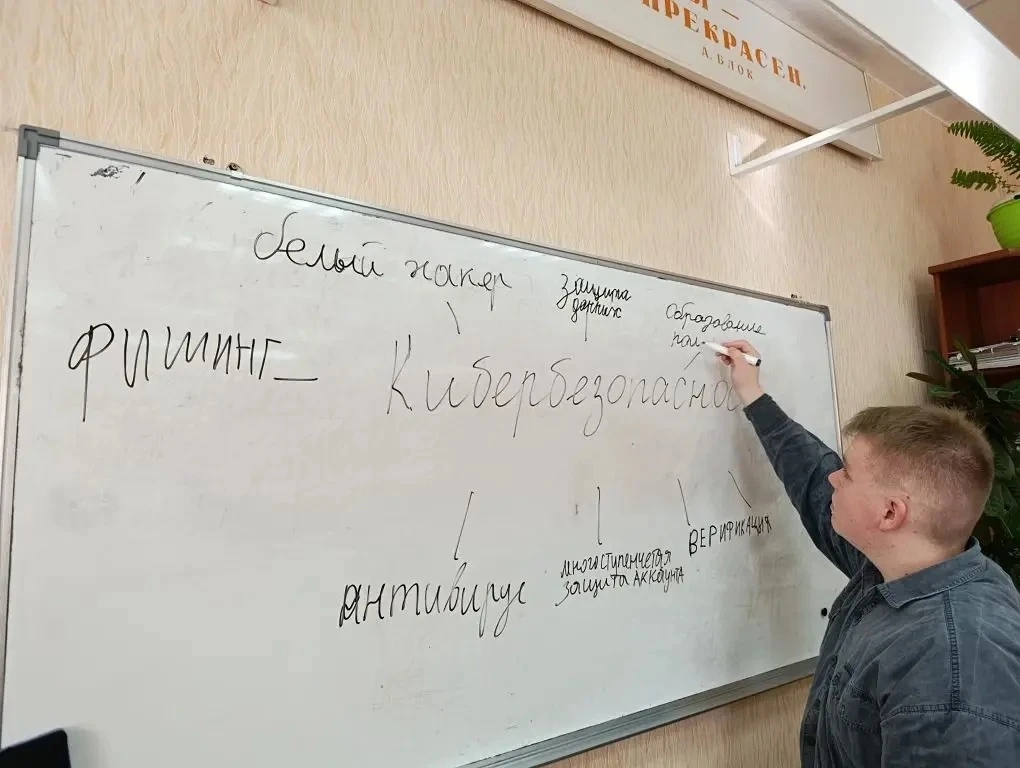 ПРЕКРАСЕН.
А. БЛОК
белый хакер
защита
данных
образование
фишинг
Кибербезопаснос
антивирус
многоступенчетая
защита аккаунта
верификация